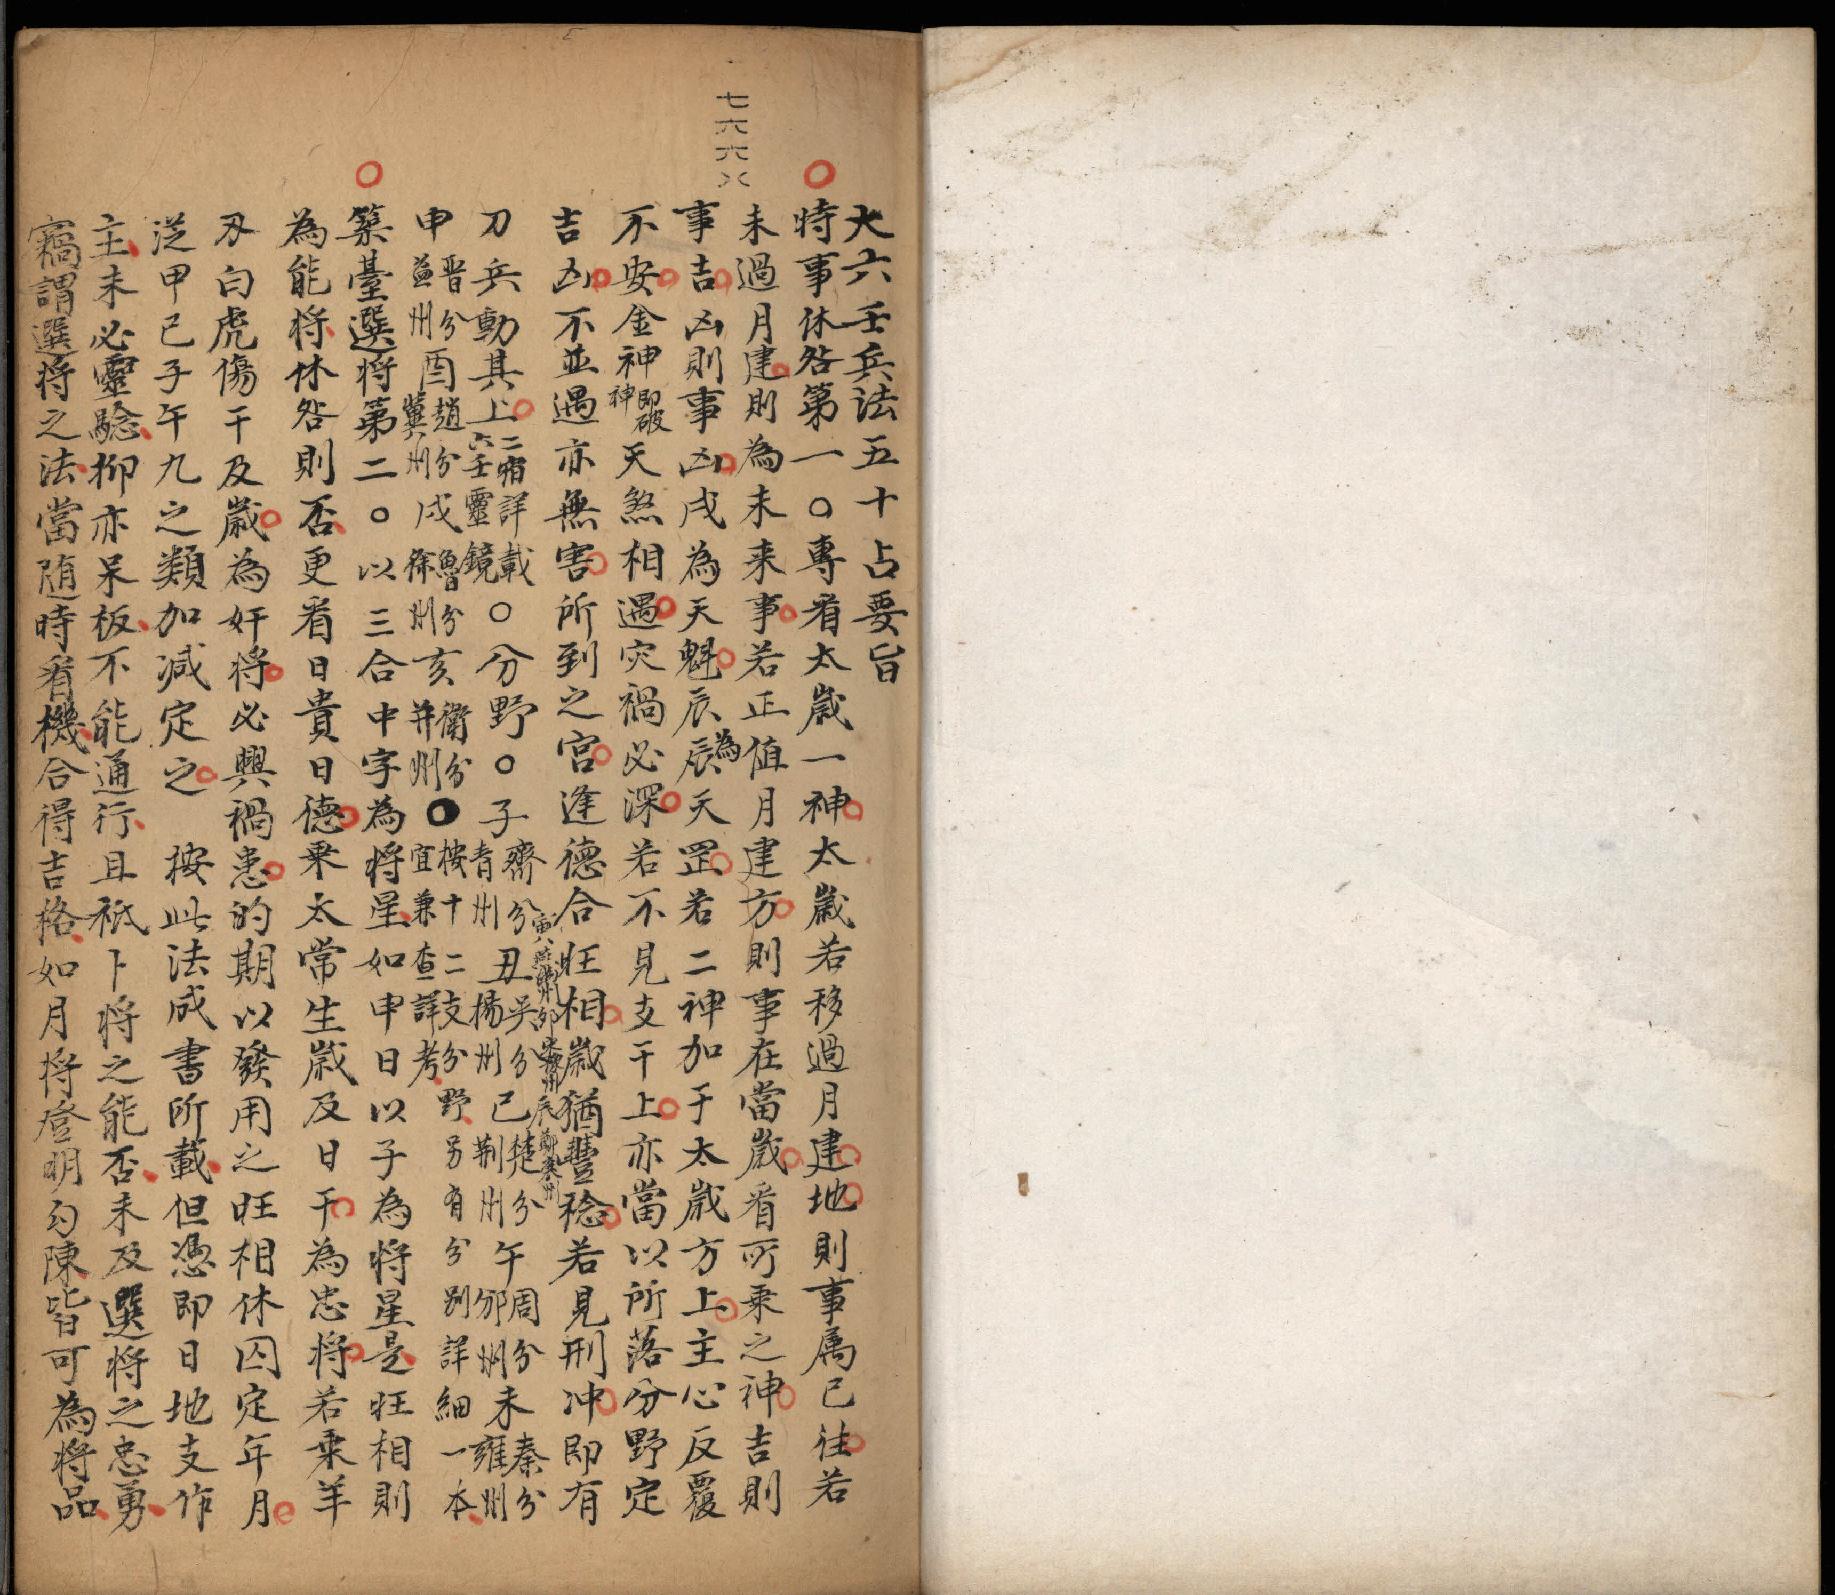 大六壬兵法五十占要旨
時事休咎第一○專看太歲一神太歲若移過月建地則事属已往若
未過月建則為未来事若正值月建方則事在當歲看所乘之神吉則
事吉凶則事凶戌為天魁辰為天罡若二神加于太歲方上主心反覆
不安金神即破神天煞相遇灾禍必深若不見支干上亦當以所落分野定
吉凶不並遇亦無害所到之宮逢德合旺相歲猶豐稔若見刑冲即有
刀兵動其上二宿詳載六壬靈鏡○分野○子齊分青州丑吳分楊州寅燕卯宋辰鄭兗州巳楚分荆州午周分邠州未秦分雍州
申晋分益州酉趙分冀州戌魯分徐州亥衛分并州●按十二支分野另有分别詳細一本宜兼查詳考
築臺選将第二○以三合中字為将星如申日以子為将星是旺相則
為能将休咎則否更看日貴日德乘太常生歲及日干為忠将若乘羊
刃白虎傷干及歲為奸将必興禍患的期以發用之旺相休囚定年月
從甲己子午九之類加减定之 按此法成書所載但憑即日地支作
主未必靈驗抑亦呆板不能通行且祗卜将之能否未及選将之忠勇
竊謂選将之法當随時看機合得吉格如月将登明勾陳皆可為将品
七六六乂